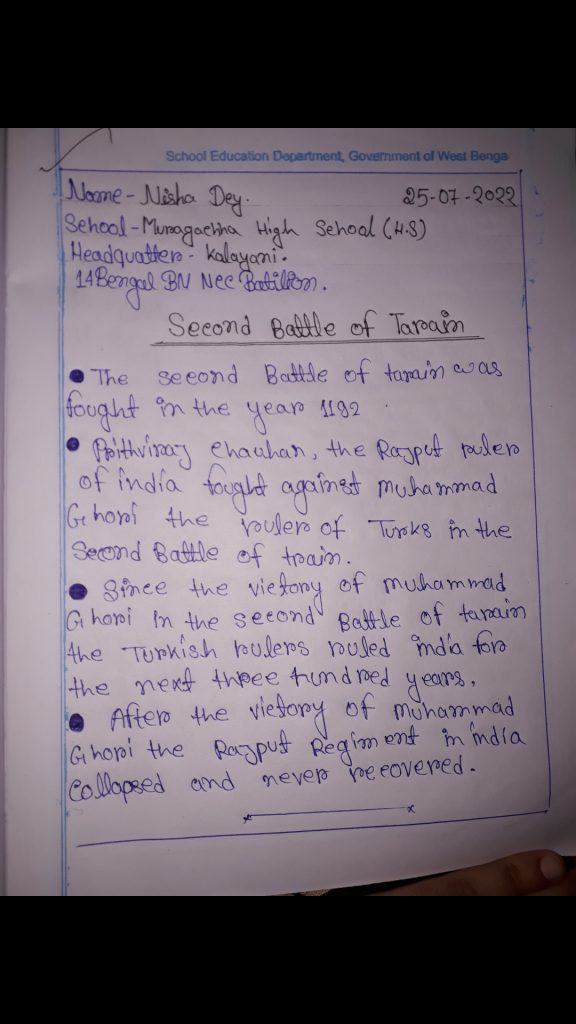 School Education Department, Government of West Benga
Name - Nisha Dey.
25-07-2022
School - Muragachha High School (H.S)
Headquatter - Kalayani.
14 Bengal BN Ncc Batilion.
Second Battle of Tarain
● The second Battle of tarain was
fought in the year 1192
● Prithviraj chauhan, the Rajput ruler
of india fought against Muhammad
Ghori the ruler of Turks in the
Second Battle of train.
● Since the victory of muhammad
Ghori in the second Battle of tarain
the Turkish rulers ruled india for
the next three hundred years.
● After the victory of muhammad
Ghori the Rajput Regiment in india
Collapsed and never recovered.